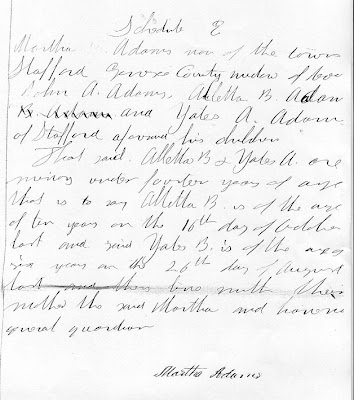 "Schedule E
Martha Adams now of the town
Stafford Genesee County widow of
John A. Adams, Alletta B. Adam
B. Adams and Yates A. Adam
of Stafford aforesaid his children"
That said Alletta B & Yates A. are
minors under fourteen years of age
that is to say Alletta B. is of the age
of ten years on the 16th day of October
last and said Yates B. is of the age
six years on the 26th day of August
last and they live with their
mother the said Martha and have no
general guardian
Martha Adams